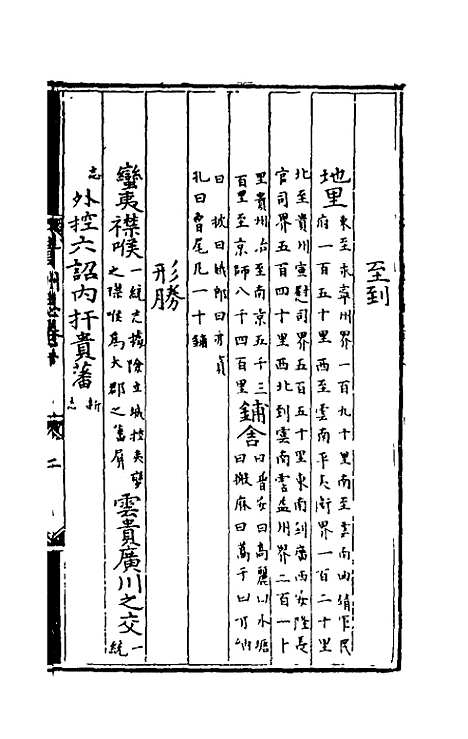 至到
地里東至永寧州界一百九十里南至雲南曲靖軍民
府一百五十里西至雲南平夷衛界一百二十里
北至貴州宣慰司界五百五十里東南到廣西安隆長
官司界五百四十里西北到雲南霑益州界二百一十
里貴州治至南京五千三
百里至京師八千四百里鋪舍曰普安曰高麗曰水塘
曰撒麻曰蒿子曰
曰
孔曰魯尾凡一十鋪
形勝
蠻夷襟喉一統之據險立城控夷蠻
之襟喉為大郡之舊屏雲貴廣川之交一統
志外控六詔內扞貴藩新志